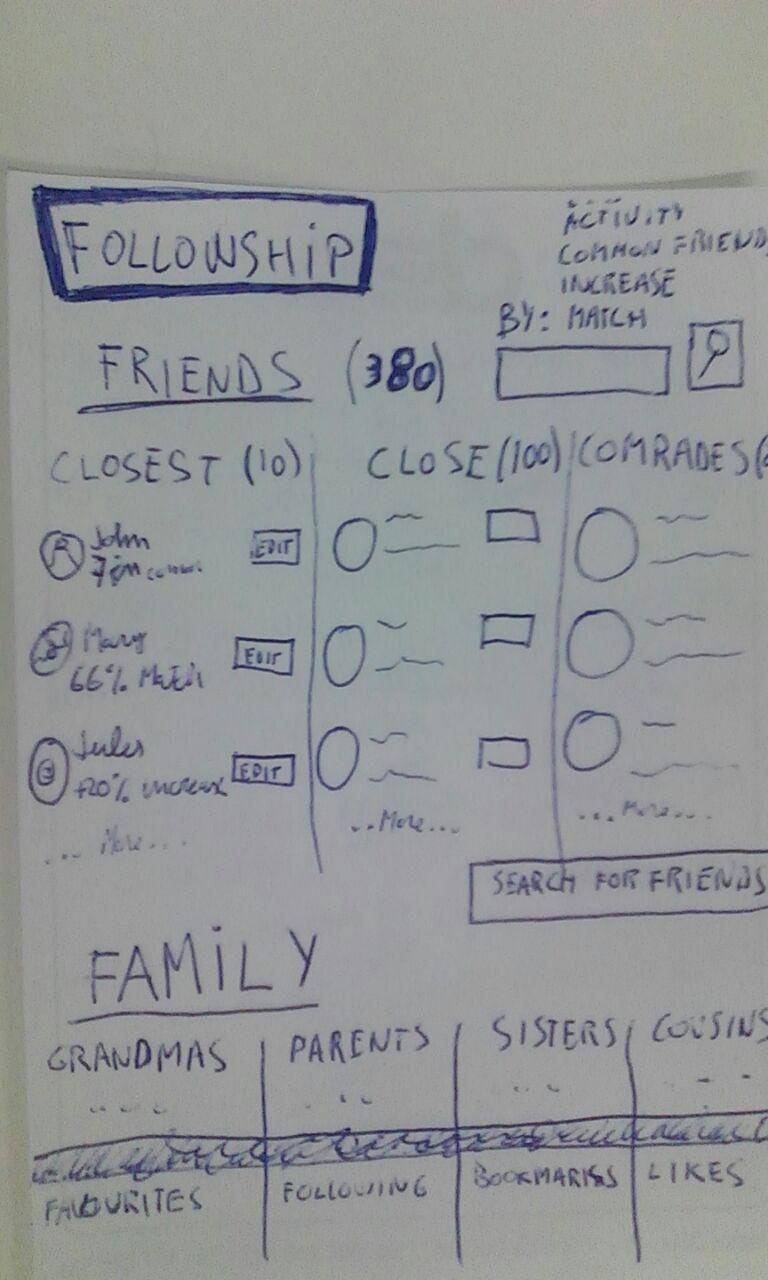 FOLLOWSHIP
ACTIVITY
COMMON FRIENDS
INCREASE
BY: MATCH
FRIENDS (380)
CLOSEST (10)
CLOSE (100)
COMRADES (
John
7 in common
EDIT
Mary
66% Match
EDIT
Jules
+20% increase
EDIT
... More...
...More...
...More...
SEARCH FOR FRIENDS
FAMILY
GRANDMAS
PARENTS
SISTERS
COUSINS
FAVOURITES
FOLLOWING
BOOKMARKS
LIKES